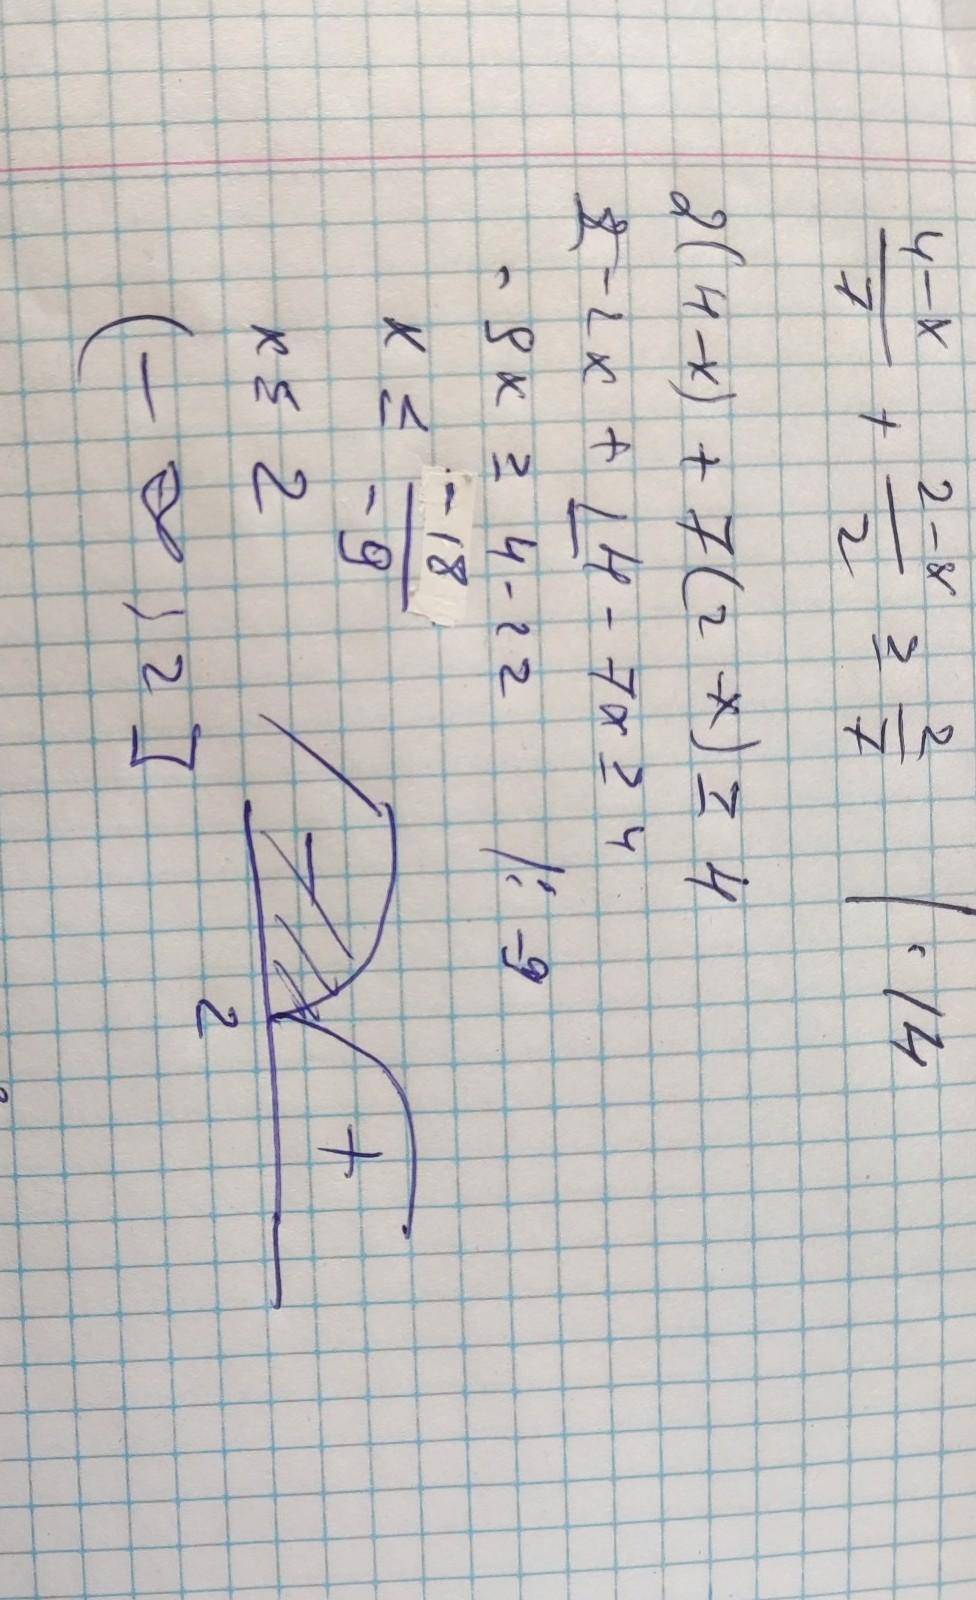 4-x/7 + 2-x/2 ≥ 2/7 / · 14
2(4-x) + 7(2-x) ≥ 4
8 - 2x + 14 - 7x ≥ 4
- 9x ≥ 4 - 22 /: -9
x ≤ -18/-9
x ≤ 2
- +
2
(-∞; 2]